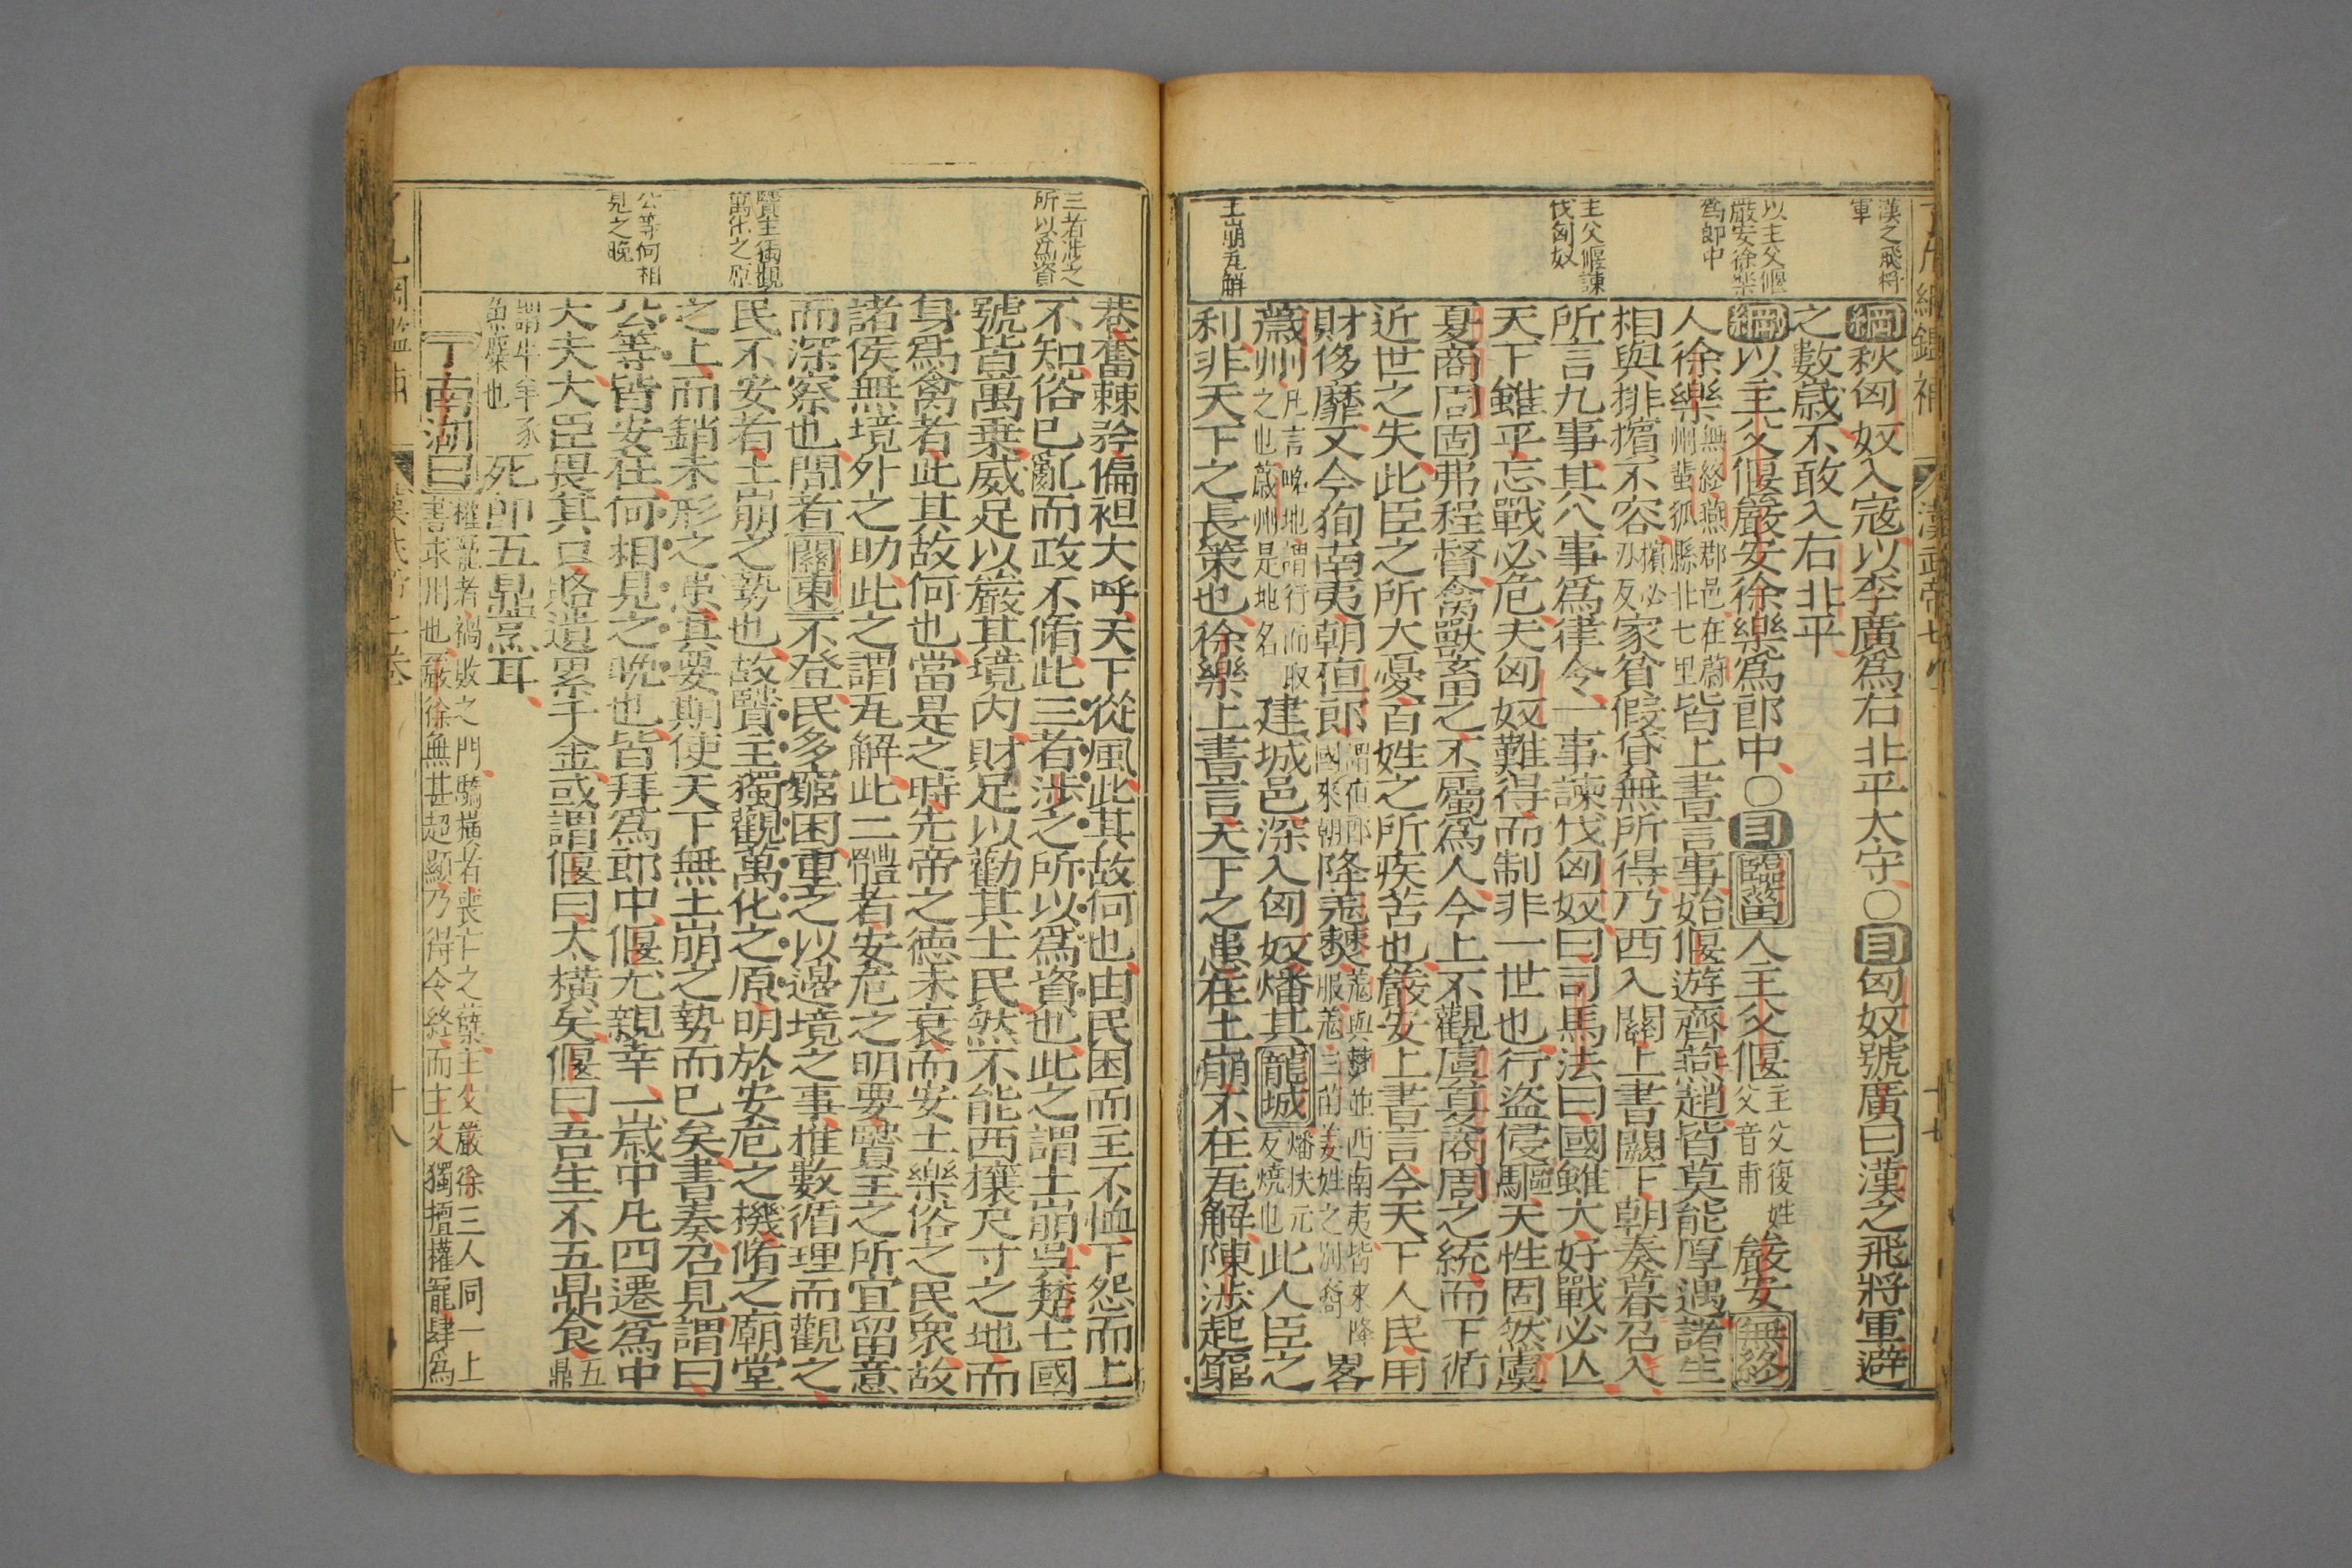 漢之飛將
軍
以主父偃
嚴安徐樂
爲郎中
主父偃諫
伐匈奴
土崩瓦解
綱秋匈奴入寇以李廣爲右北平太守○目匈奴號廣曰漢之飛將軍避
之數歲不敢入右北平
綱以主父偃嚴安徐樂爲郎中○目臨菑人主父偃主父復姓父音甫嚴安無終
人徐樂無終燕郡邑在薊州蜚狐縣北七里皆上書言事始偃遊齊燕趙皆莫能厚遇諸生
相與排擯不容擯必刃反家貧假貸無所得乃西入關上書闕下朝奏暮召入
所言九事其八事爲律令一事諫伐匈奴曰司馬法曰國雖大好戰必亾
天下雖平忘戰必危夫匈奴難得而制非一世也行盜侵驅天性固然虞
夏商周固弗程督禽獸畜之不屬爲人今上不觀虞夏商周之統而下循
近世之失此臣之所大憂百姓之所疾苦也嚴安上書言今天下人民用
財侈靡又今狥南夷朝夜郎謂夜郎國來朝降羗僰羗與僰並西南夷皆來降服羗三苗姜姓之別裔畧
薉州凡言畧地謂行而取之也薉州是地名建城邑深入匈奴燔其龍城燔扶元反燒也此人臣之
利非天下之長策也徐樂上書言天下之患在土崩不在瓦解陳涉起窮
三者涉之
所以爲資
賢主獨觀
萬化之原
公等何相
見之晚
巷奮棘矜偏袒大呼天下從風此其故何也由民困而主不恤下怨而上
不知俗已亂而政不脩此三者涉之所以爲資也此之謂土崩吳楚七國
號皆萬乗威足以嚴其境內財足以勸其士民然不能西攘尺寸之地而
身爲禽者此其故何也當是之時先帝之德未衰而安土樂俗之民衆故
諸侯無境外之助此之謂瓦解此二體者安危之明要賢主之所宜留意
而深察也間者關東不登民多窮困重之以邊境之事推數循理而觀之
民不安者土崩之勢也故賢主獨觀萬化之原明於安危之機脩之廟堂
之上而銷未形之患其要期使天下無土崩之勢而已矣書奏召見謂曰
公等皆安在何相見之晩也皆拜爲郎中偃尤親幸一歲中凡四遷爲中
大夫大臣畏其口賂遺累千金或謂偃曰太橫矣偃曰吾生不五鼎食五鼎
謂牛羊豕魚麋也死卽五鼎烹耳
丁南湖曰權寵者禍敗之門驕橫者喪亡之蘖主父嚴徐三人同一上
書求用也嚴徐無甚超顯乃得令終而主父獨擅權寵肆爲